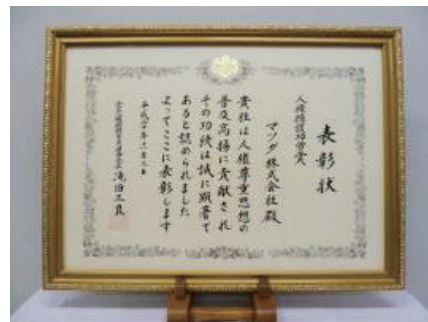 表彰状
人権擁護功労賞
マツダ株式会社殿
貴社は人権尊重思想の
普及高揚に貢献され
その功績は誠に顕著で
あると認められました
よってここに表彰します
全国人権擁護委員連合会長 滝田三良